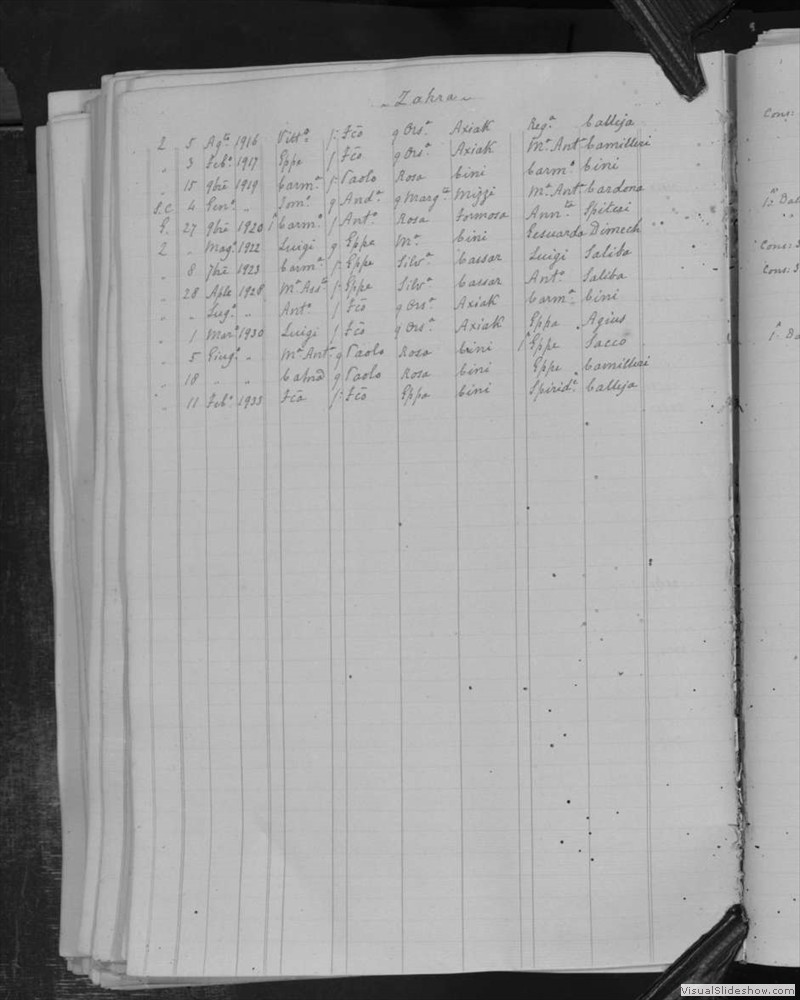 Zahra
2 5 Ag.to 1916 Vitt.a f. Fco q Ors.a Axiak Reg.a Calleja
" 3 Feb.o 1917 Eppe f. Fco q Ors.a Axiak M.a Ant.a Camilleri
" 15 9bre 1919 Carm.a f. Paolo Rosa Cini Carm.o Cini
S.C. 4 Gen.o " Tom.o q And.a q Marg.ta Mizzi M.a Ant.a Cardona
G. 27 9bre 1920 1º Carm.o f. Ant.o Rosa Formosa Ann.ta Spiteri
2 " Mag.o 1922 Luigi q Eppe M.a Cini Gesuarda Dimech
" 8 7bre 1923 Carm.a f. Eppe Silv.a Cassar Luigi Saliba
" 28 Aple 1928 M.a Ass.ta f. Eppe Silv.a Cassar Ant.o Saliba
" " Lug.o " Ant.o f. Fco q Ors.a Axiak Carm.a Cini
" 1 Mar.o 1930 Luigi f. Fco q Ors.a Axiak Eppa Agius
" 5 Giug.o " M.a Ant.a q Paolo Rosa Cini 1º Eppe Sacco
" 18 " " q Paolo Rosa Cini Eppe Camilleri
" 11 Feb.o 1933 Fca f. Fco Eppa Cini Spirid.e Calleja
Cons:
Cons: 3
Cons: 3
VisualSlideshow.com